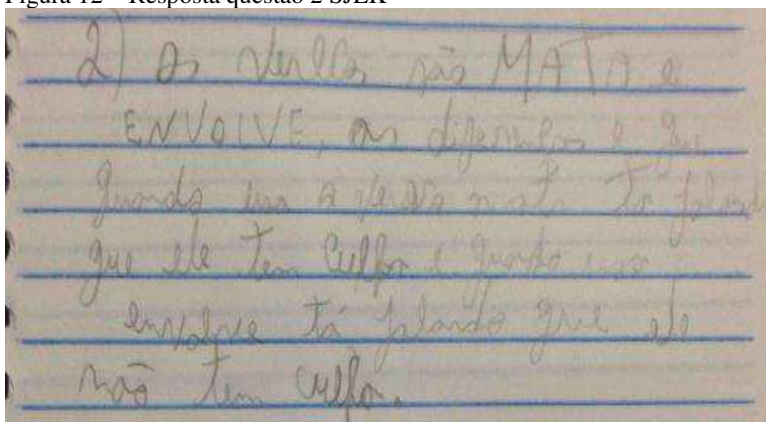 Figura 12 – Resposta questão 2 SJEK
2) Os verbos são MATA e
ENVOLVE, as diferenças é que
quando usa o verbo mata tá falando
que ele tem culpa e quando usa
envolve tá falando que ele
não tem culpa.